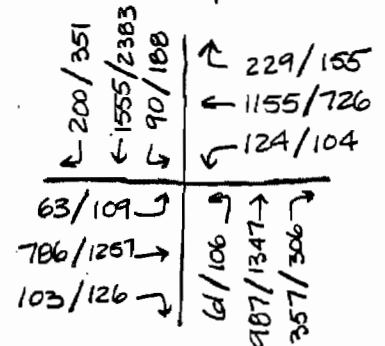 200/351
1555/2383
90/188
229/155
1155/726
124/104
63/109
786/1257
103/126
61/106
987/1347
357/306